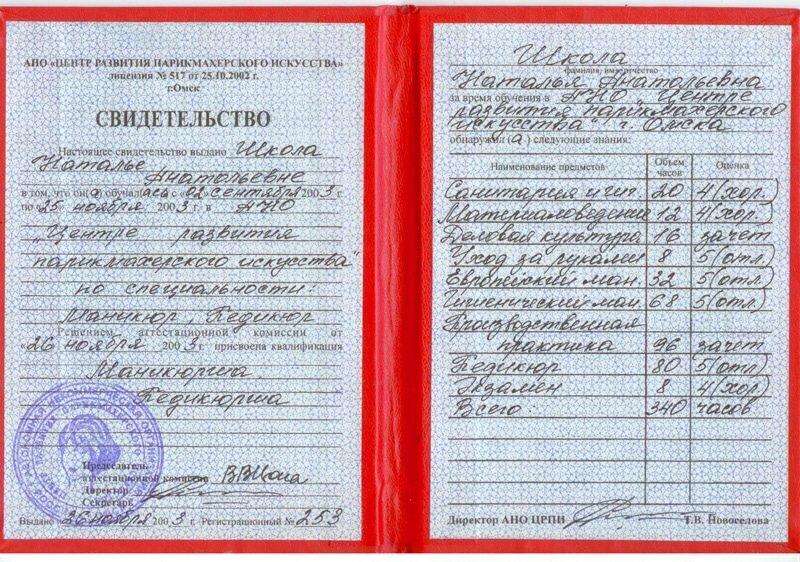 АНО «ЦЕНТР РАЗВИТИЯ ПАРИКМАХЕРСКОГО ИСКУССТВА»
лицензия № 517 от 25.10.2002 г.
г.Омск
СВИДЕТЕЛЬСТВО
Настоящее свидетельство выдано Школа
Наталье Анатольевне
в том, что он(а) обучалась с «02 сентября 2003 г.
по «25 ноября 2003 г. в АНО
"Центре развития
парикмахерского искусства"
по специальности:
Маникюр, Педикюр
Решением аттестационной комиссии от
«26 ноября 2003 г. присвоена квалификация
Маникюрша
Педикюрша
Председатель
аттестационной комиссии
Директор
Секретарь
Выдано «26 ноября 2003 г. Регистрационный № 253
Школа
фамилия, имя, отчество
Наталья Анатольевна
за время обучения в АНО "Центре
развития парикмахерского
искусства" г. Омска
обнаружил (а) следующие знания:
Наименование предметов Объем часов Оценка
Санитария и гиг. 20 4 (хор.)
Материаловедение 12 4 (хор.)
Деловая культура 16 зачет
Уход за руками 8 5 (отл.)
Европейский ман. 32 5 (отл.)
Гигиенический ман. 68 5 (отл.)
Производственная
практика 96 зачет
Педикюр 80 5 (отл.)
Экзамен 8 4 (хор.)
Всего: 340 часов
Директор АНО ЦРПИ Т.В. Новоселова